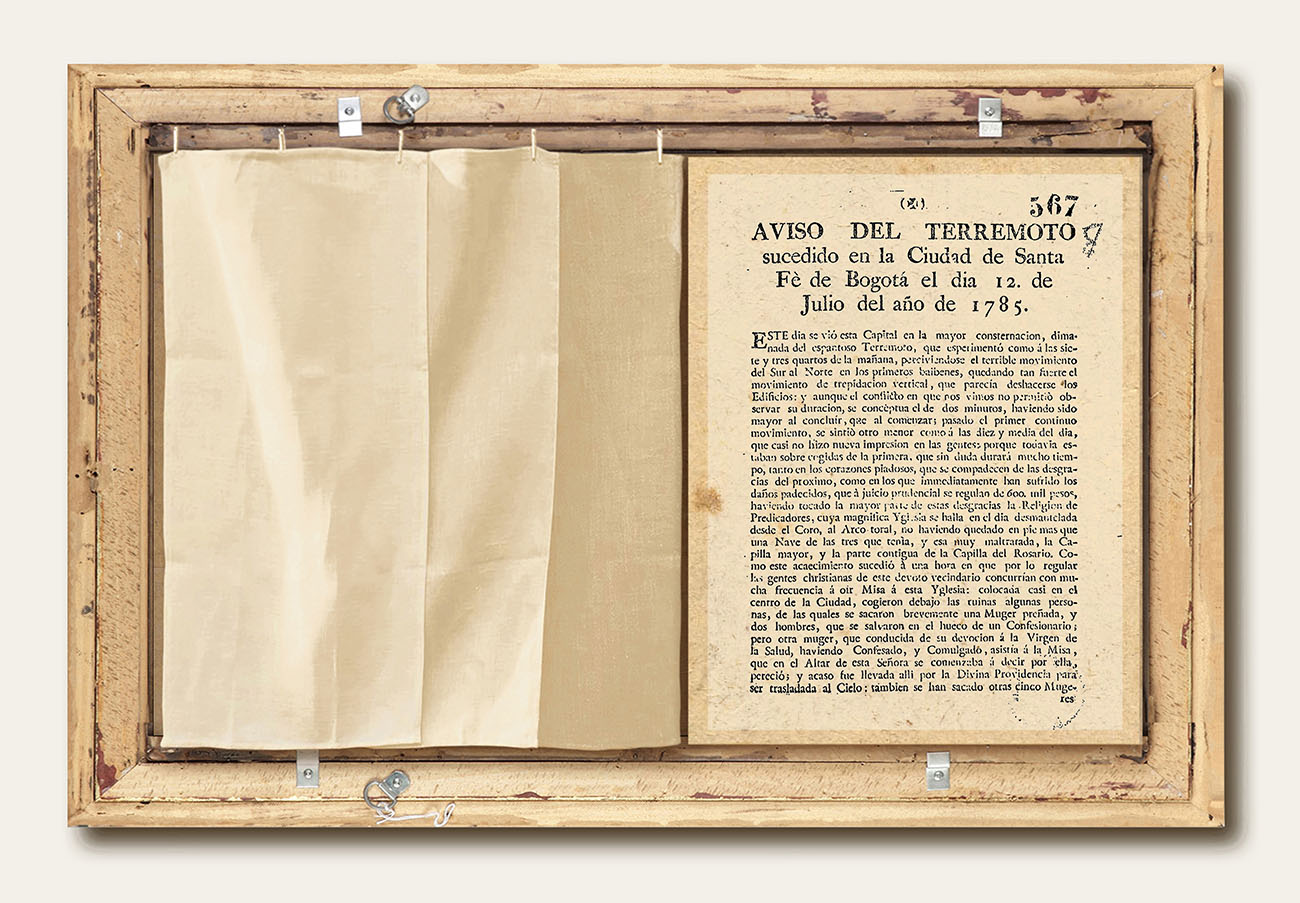 567
AVISO DEL TERREMOTO
sucedido en la Ciudad de Santa
Fè de Bogotá el dia 12. de
Julio del año de 1785.
ESTE dia se vió esta Capital en la mayor consternacion, dima-
nada del espantoso Terremoto, que esperimentó como á las sie-
te y tres quartos de la mañana, perciviendose el terrible movimiento
del Sur al Norte en los primeros baibenes, quedando tan fuerte el
movimiento de trepidacion vertical, que parecía deshacerse los
Edificios: y aunque el conflicto en que nos vimos no permitiò ob-
servar su duracion, se concèptua el de dos minutos, haviendo sido
mayor al concluir, que al comenzar; pasado el primer continuo
movimiento, se sintiò otro menor como á las diez y media del dia,
que casi no hizo nueva impresion en las gentes: porque todavia es-
taban sobre cogidas de la primera, que sin duda durará mucho tiem-
po, tanto en los corazones piadosos, que se compadecen de las desgra-
cias del proximo, como en los que immediatamente han sufrido los
daños padecidos, que à juicio prudencial se regulan de 600. mil pesos,
haviendo tocado la mayor parte de estas desgracias la Religion de
Predicadores, cuya magnifica Yglesia se halla en el dia desmantelada
desde el Coro, al Arco toral, no haviendo quedado en pie mas que
una Nave de las tres que tenia, y esa muy maltratada, la Ca-
pilla mayor, y la parte contigua de la Capilla del Rosario. Co-
mo este acaecimiento sucedió à una hora en que por lo regular
las gentes christianas de este devoto vecindario concurrían con mu-
cha frecuencia á oir Misa á esta Yglesia: colocada casi en el
centro de la Ciudad, cogieron debajo las ruinas algunas perso-
nas, de las quales se sacaron brevemente una Muger preñada, y
dos hombres, que se salvaron en el hueco de un Confesionario;
pero otra muger, que conducida de su devocion á la Virgen de
la Salud, haviendo Confesado, y Comulgado, asistía á la Misa,
que en el Altar de esta Señora se comenzaba á decir por ella,
pereció; y acaso fue llevada alli por la Divina Providencia para
ser trasladada al Cielo: tambien se han sacado otras cinco Muge-
res